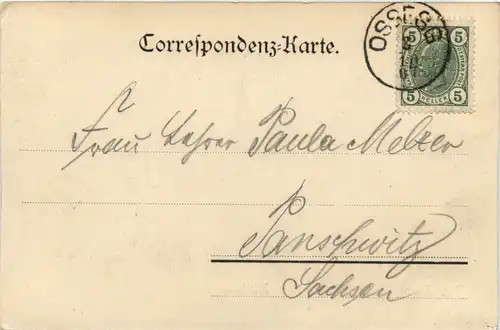 OSSEGG
5 5
HELLER
5 5
Correspondenz-Karte.
Frau Lehrer Paula Melzer
Panschwitz
Sachsen